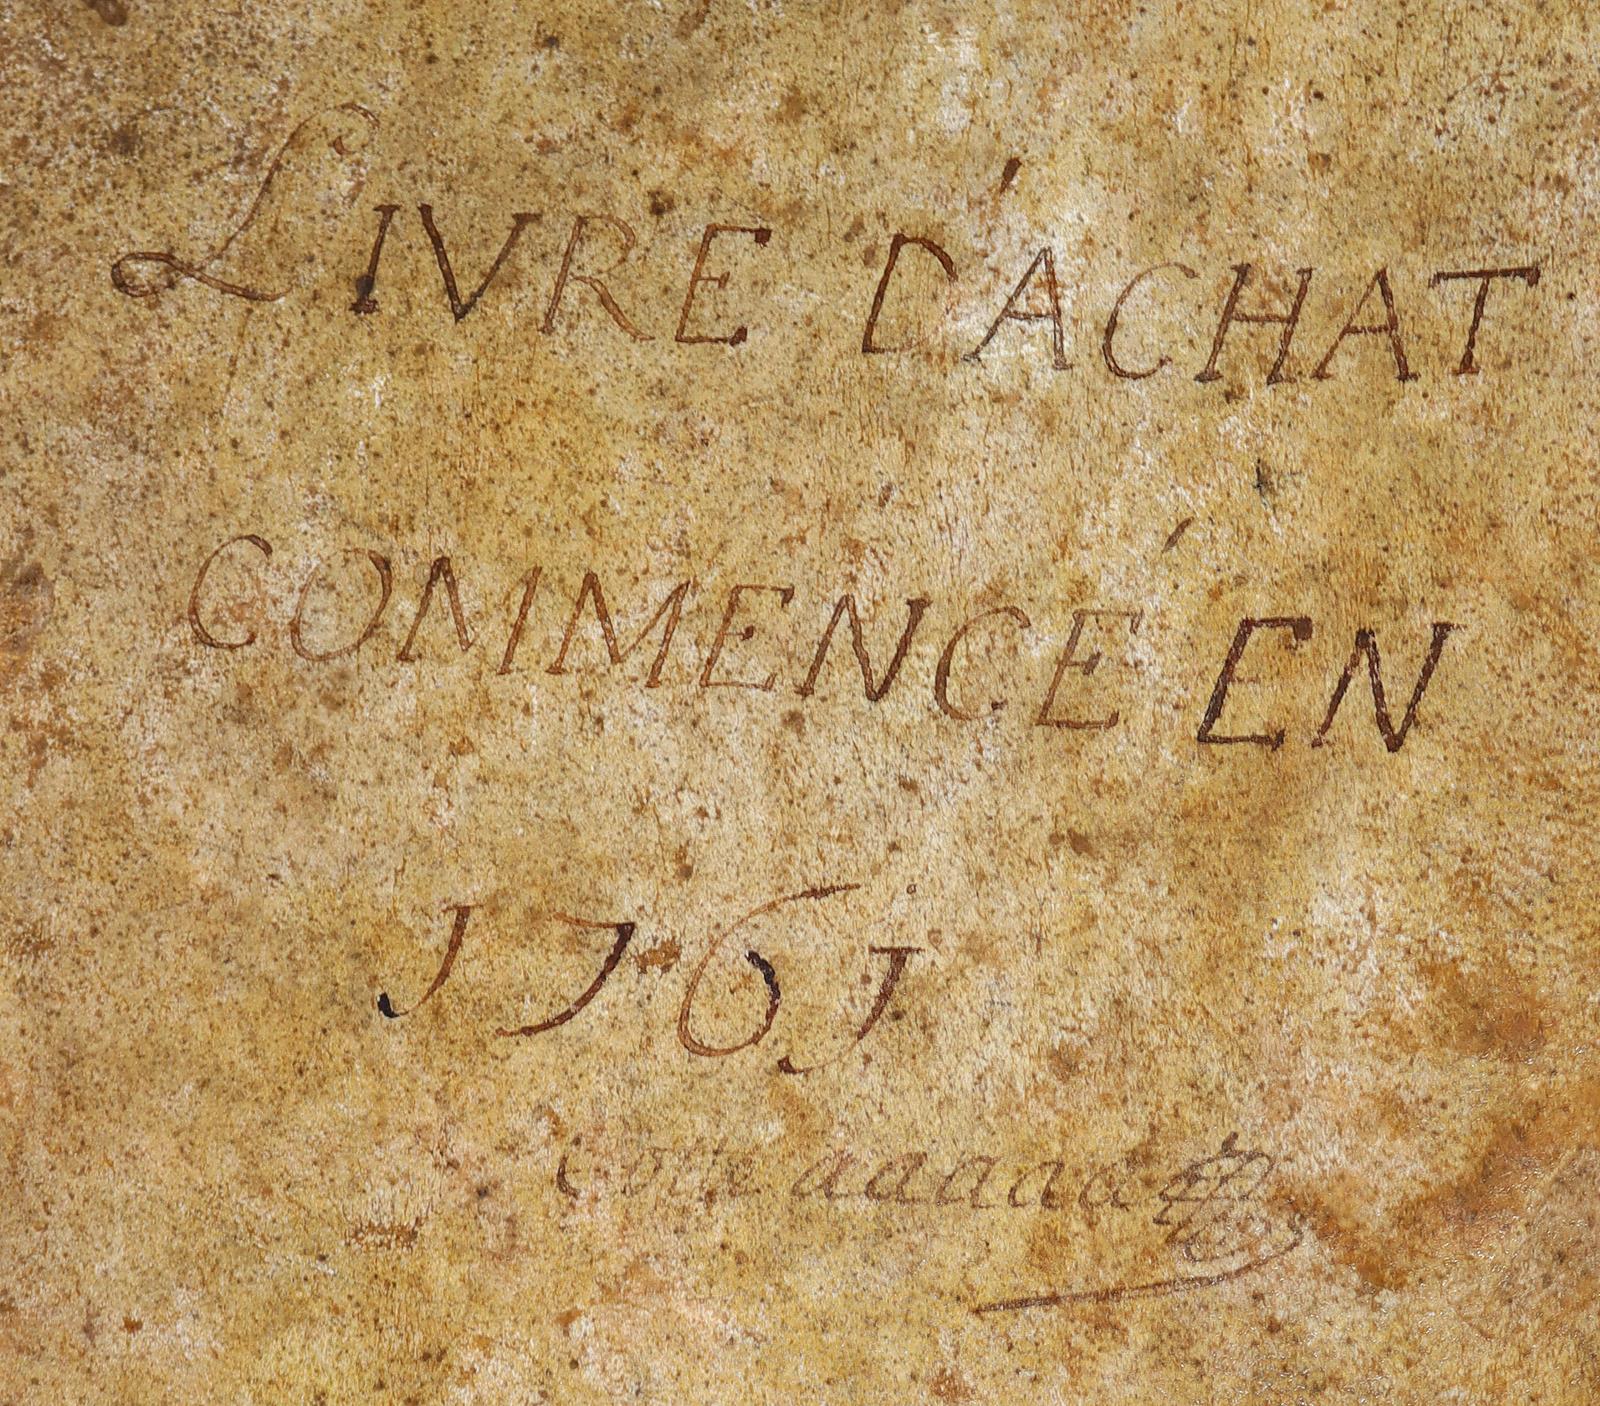 LIVRE D'ACHAT
COMMENCÉ EN
1761